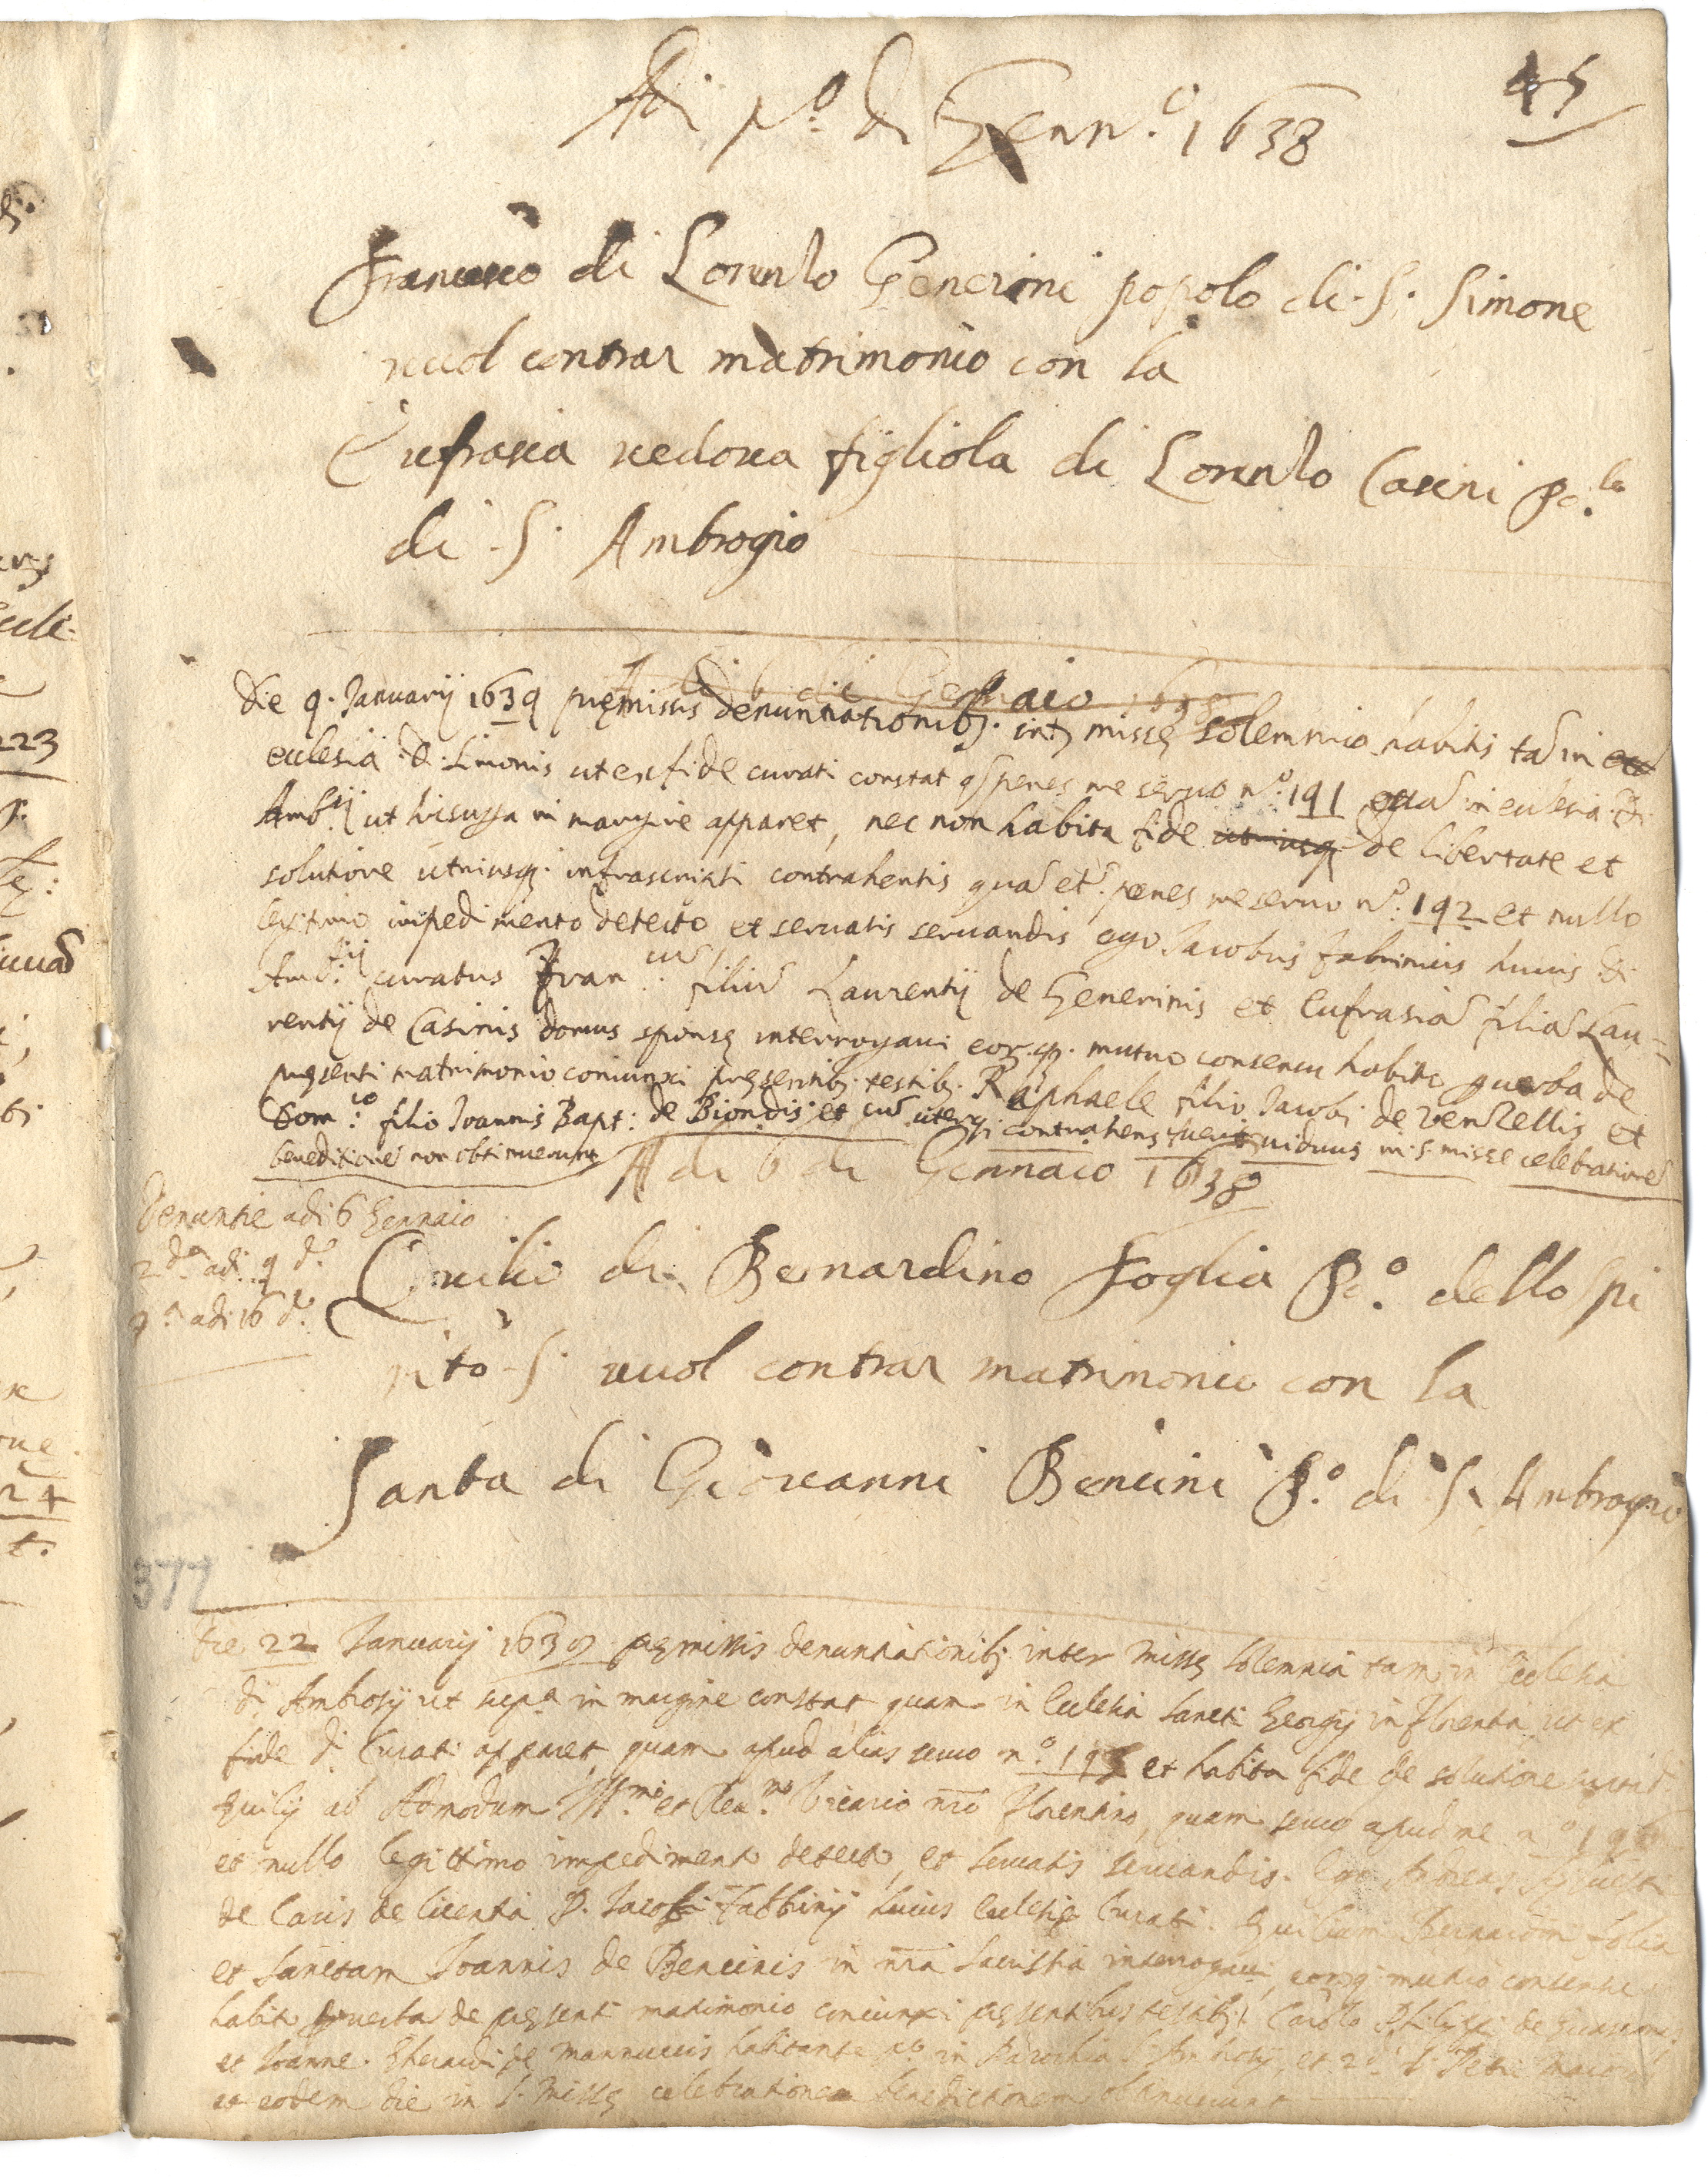 45
Adi p.º di Genn.º 1638
Francesco di Lorenzo Generini popolo di S. Simone
vuol contrar matrimonio con la
Eufrasia vedova figliola di Lorenzo Casini Po.lo
di S. Ambrogio
Adi 6 di Gennaio 1638
Die 9. Januarij 1639 premissis denuntiationibq. intr missę solemnia habitis tā in ecc
ecclesia D. Simonis ut ex fide curati constat q penes me servo n.º 191 quā in eclesia D.
Amb.sij ut hic supra in margine apparet, nec non habita fide utriusq de libertate et
solutione utriusq. infrascripti contrahentis quā et penes me servo n.º 192 et nullo
legitimo inpedimento detecto et servatis servandis ego Jacobus Fabrinius huius D.
Amb.sij curatus Fran.cum filiū Laurentij de Generinis et Eufrasiā filiā Lau=
rentij de Casinis domus sponsę interrogavi eorq. mutuo consensu habito p verba de
presenti matrimonio coniunxi pręsentibq. testibq. Raphaele filio Jacobi de Venzellis et
Dom.co filio Joannis Bapt: de Biondis et cū uterq. contrahens fuerit viduus in s. misse celebratione
beneditionē non obtinuerunt
Adi 6 di Gennaio 1638
Denuntie adi 6 Gennaio
2.da adi 9 d.º
3.a adi 16 d.º
di Bernardino Foglia Po.º dello Spi
rito S. vuol contrar matrimonio con la
Santa di Giovanni Bencini P.º di S. Ambrogio
377
Die 22 Januarij 1639 pręmissis denuntiationibq. inter missę solemnia tam in Ecclesia
D. Ambrosij ut supra in margine constat quam in Ecclesia Sancti Georgij in Florentia ut ex
fide D. Curati apparet quam apud alias servo n.º 195 et habita fide de solutione
ab Admodum Ill.mo et Rev.mo Vicario nro Florentino, quam servo apud me n.º 196
et nullo legittimo impedimento detecto, et servatis servandis. Ego Andreas
de Caris de licentia D. Jacobi Fabbrinij huius Ecclesię Curati. Bernardini Folia
et Sanctam Joannis de Bencinis in nra Sacristia interrogavi, eorq mutuo consensu
habito p verba de pręsenti matrimonio coniunxi pręsentibus testibq. Carolo Philippi de
et Joanne Gherardi de Mannuccis habitante p.º in Parochia S. Ambrosij, et 2.º S. Petri Maioris
et eodem die in S. Missę celebratione benedictionem obtinuerunt